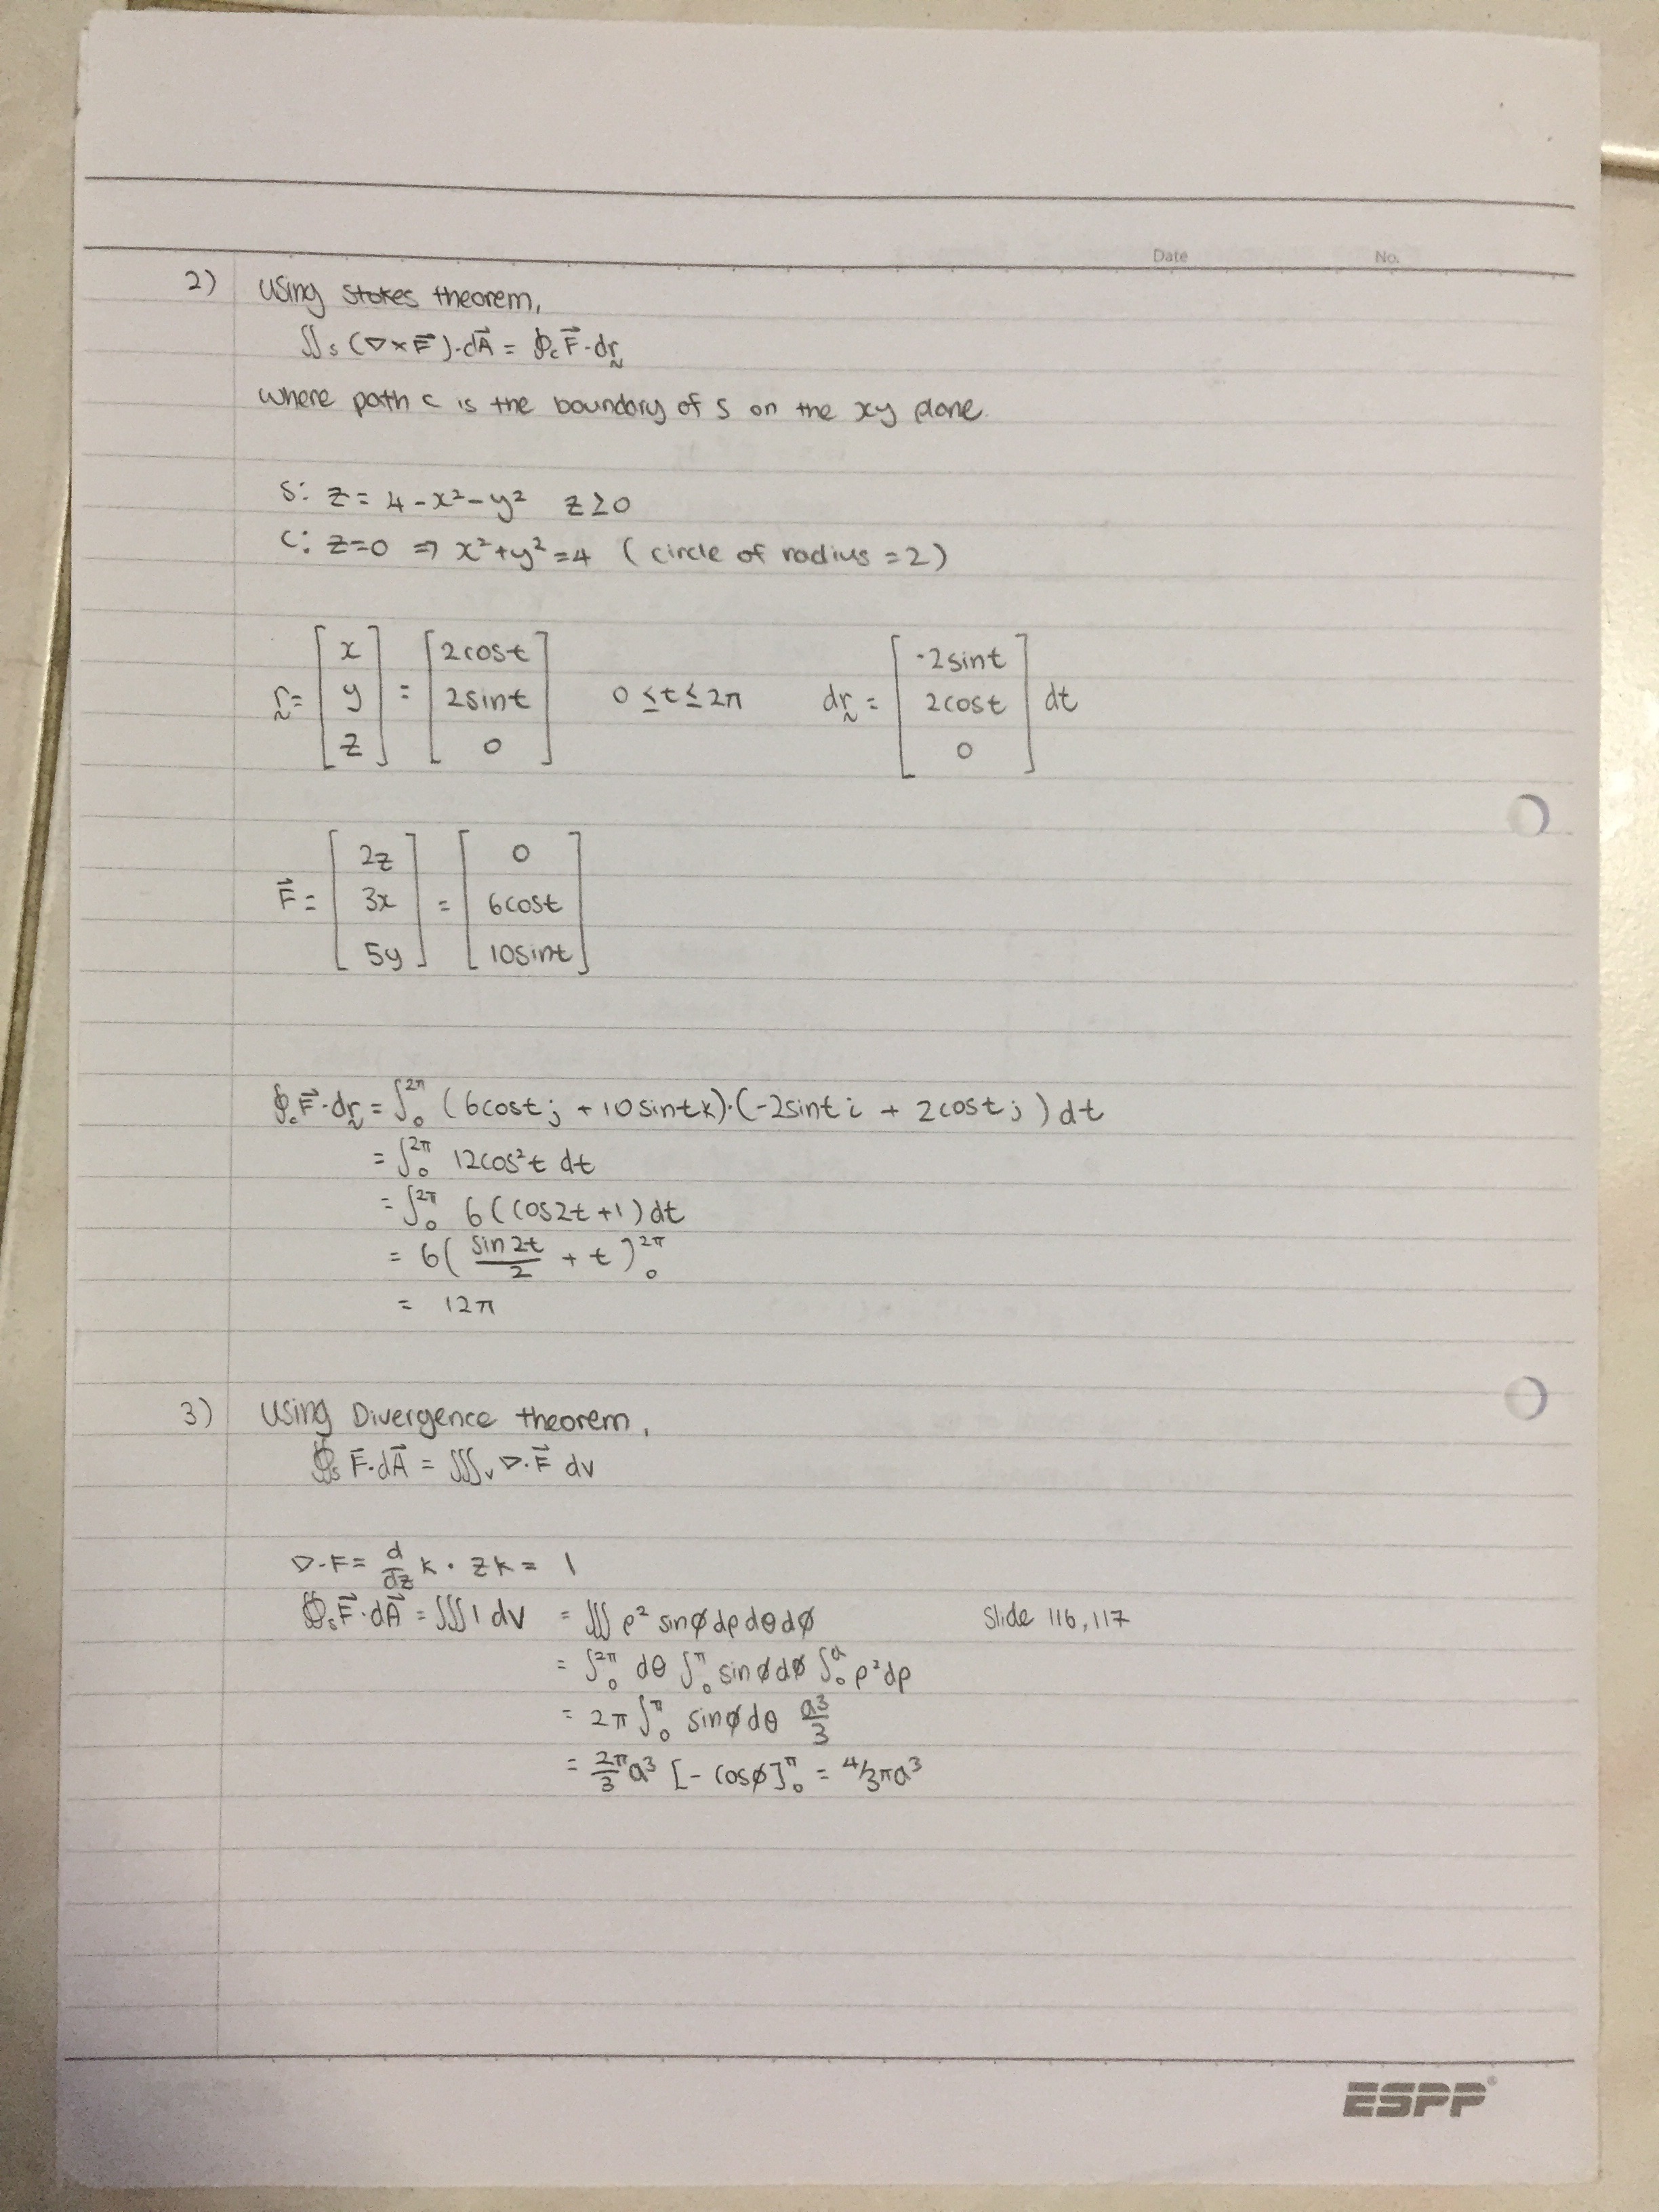 Date No.
2) Using Stokes theorem,
∬s (∇×F⃗)·dA⃗ = ∮c F⃗·dr̰
where path c is the boundary of S on the xy plane.
S: z = 4 - x² - y² z ≥ 0
C: z=0 ⇒ x²+y²=4 (circle of radius = 2)
r̰ = [x y z] = [2cost 2sint 0] 0 ≤ t ≤ 2π dr̰ = [-2sint 2cost 0] dt
F⃗ = [2z 3x 5y] = [0 6cost 10sint]
∮c F⃗·dr̰ = ∫₀^2π (6cost j + 10sint k)·(-2sint i + 2cost j) dt
= ∫₀^2π 12cos²t dt
= ∫₀^2π 6(cos2t+1)dt
= 6( sin2t/2 + t )₀^2π
= 12π
3) Using Divergence theorem,
∯s F⃗·dA⃗ = ∭v ∇·F⃗ dv
∇·F = d/dz k · zk = 1
∯s F⃗·dA⃗ = ∭ 1 dv = ∭ ρ² sinφ dρ dθ dφ Slide 116, 117
= ∫₀^2π dθ ∫₀^π sinφ dφ ∫₀^a ρ² dρ
= 2π ∫₀^π sinφ dθ a³/3
= 2π/3 a³ [-cosφ]₀^π = 4/3πa³
ESPP®